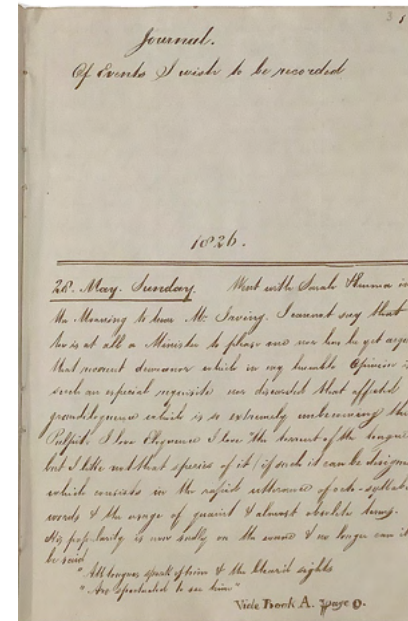 Journal.
Of Events I wish to be recorded
1826.
28. May. Sunday. Went with Sarah & Emma in
the Morning to hear Mr. Irving. I cannot say that
he is at all a Minister to please me nor has he yet
that modest demeanor which in my humble Opinion is
such an especial requisite nor discarded that affected
grandiloquence which is so extremely unbecoming the
Pulpit. I love Eloquence I love "the torrent of the tongue
but I like not that species of it (if such it can be
which consists in the rapid utterance of
words & the usage of quaint & almost obsolete terms.
His popularity is now sadly on the wane & no longer can it
be said
"All tongues speak of him & the blear'd sights
"Are spectacled to see him"
Vide Book A. page